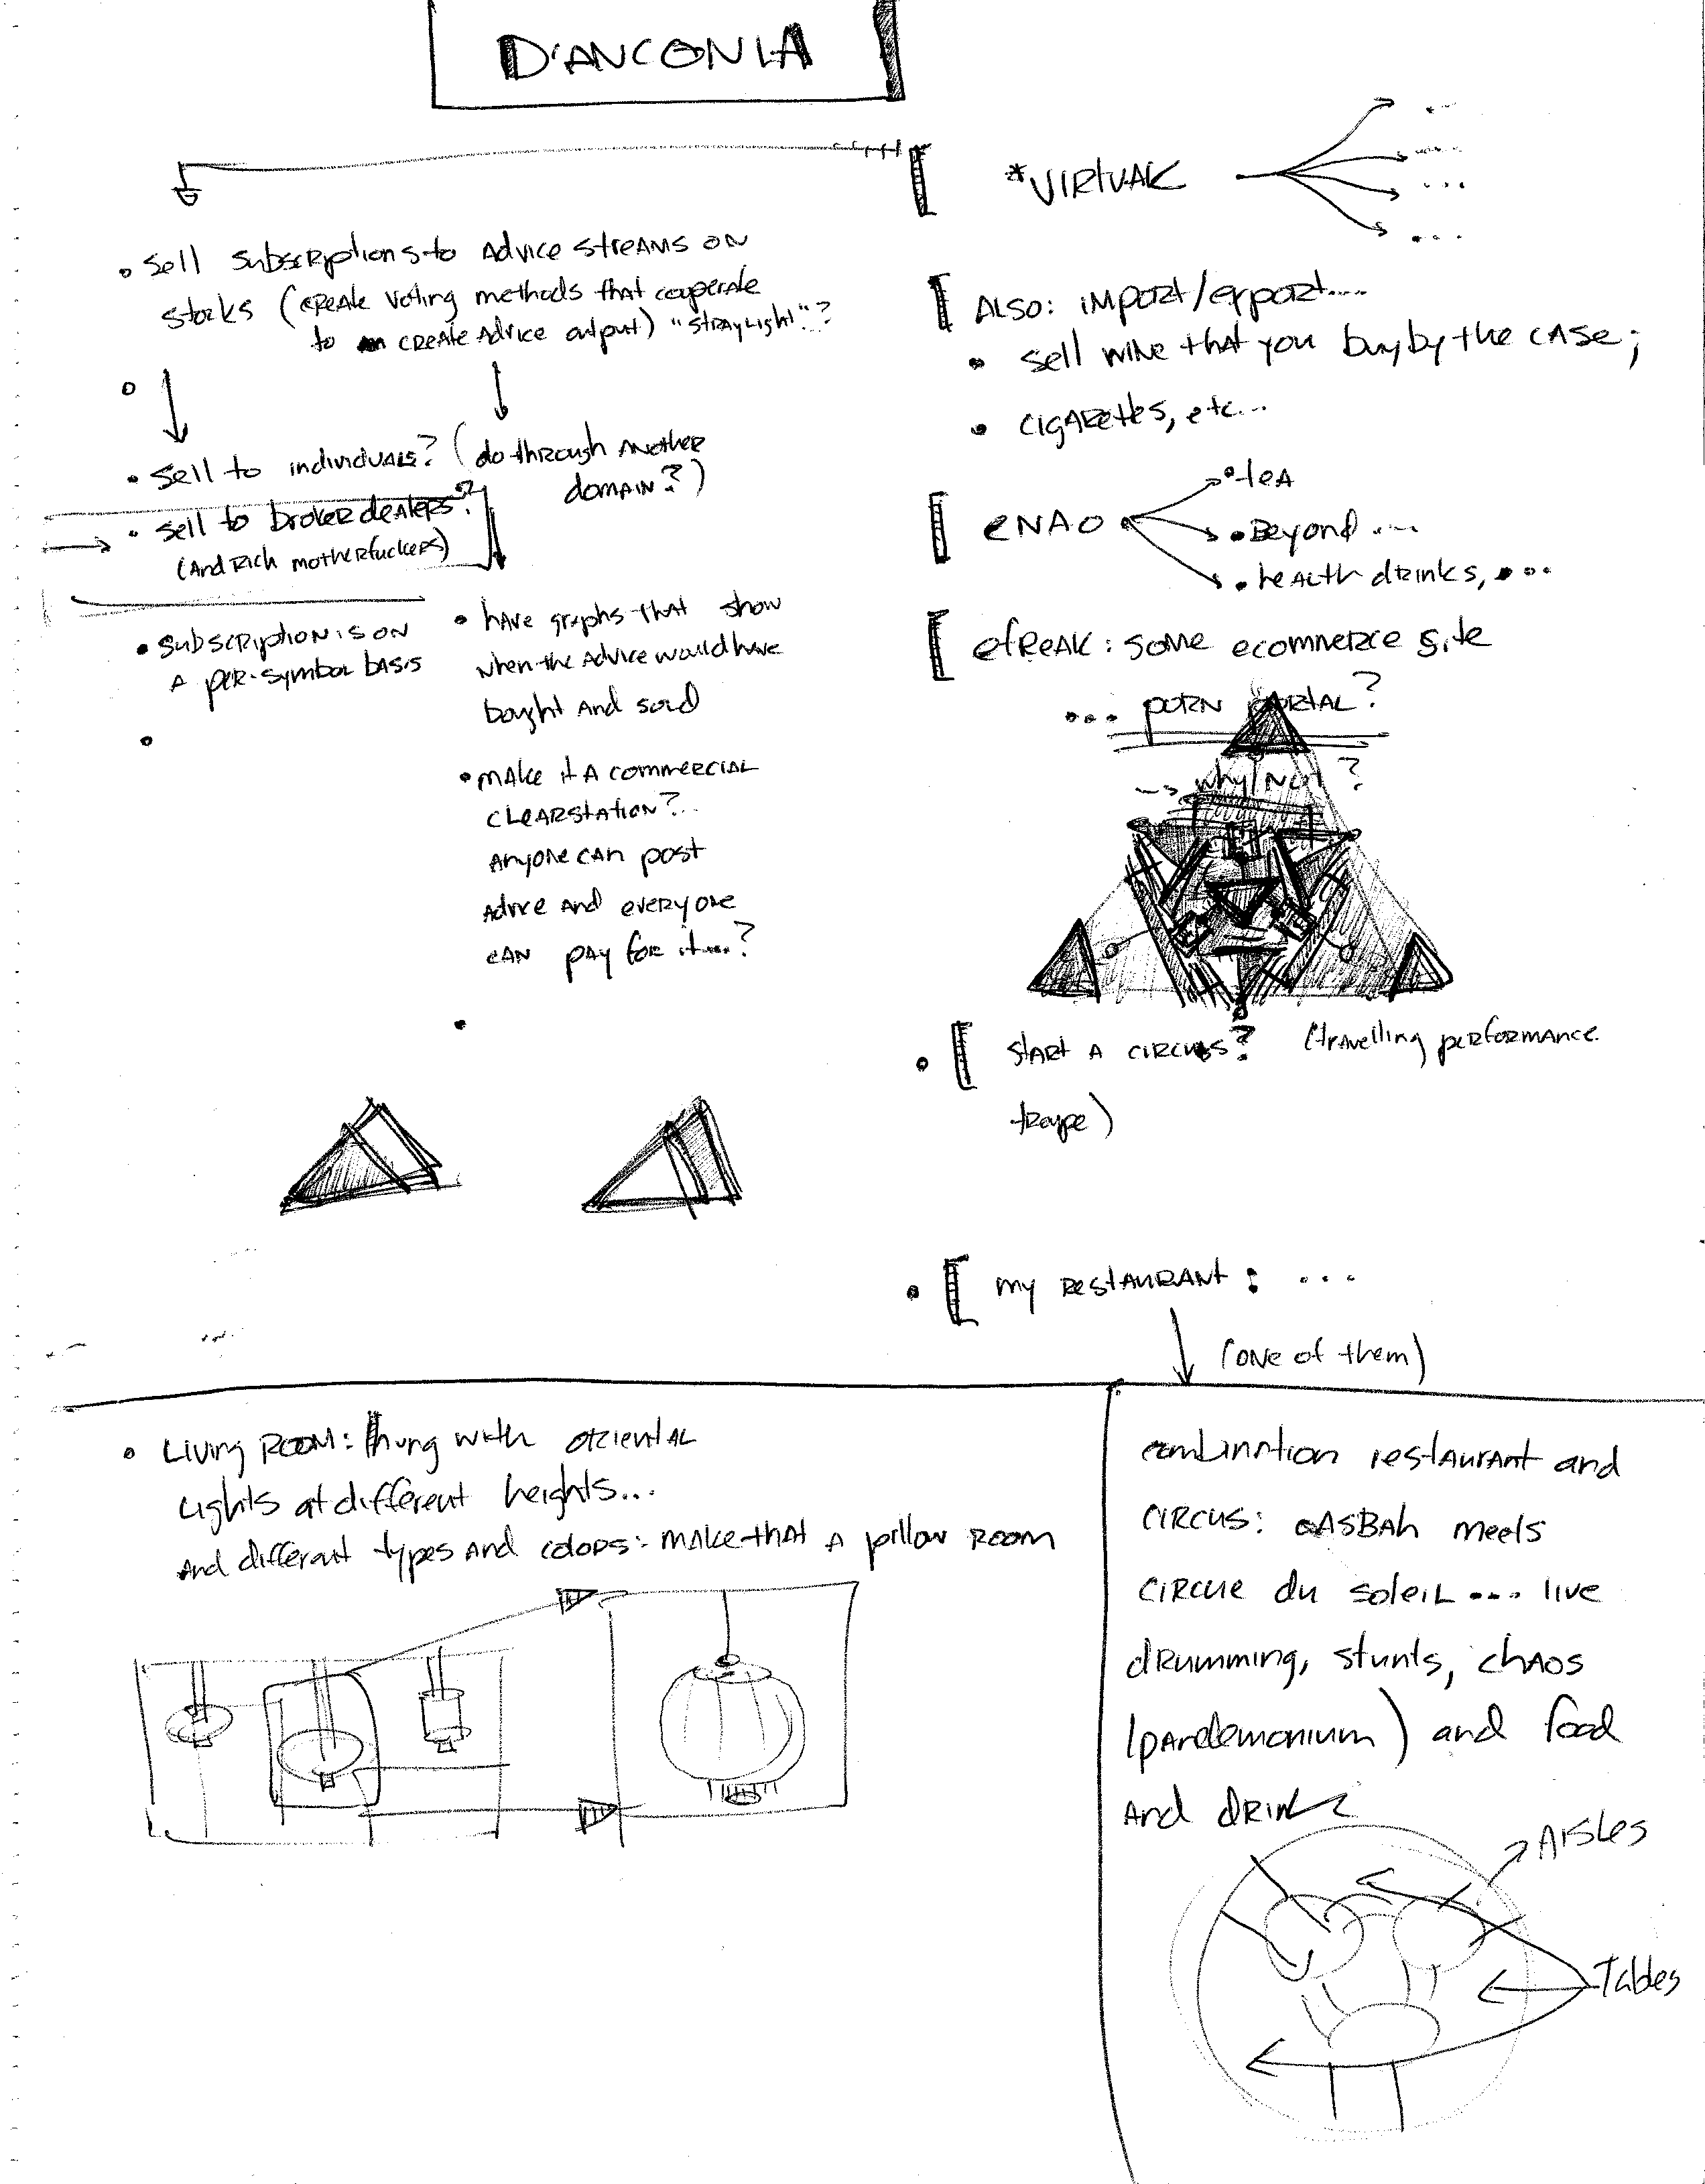 D'ANCONIA
• sell subscriptions to Advice streams on
stocks (create voting methods that cooperate
to create Advice output) "straylight"?
• sell to individuals? (do through another
domain?)
• sell to broker dealers?
(And Rich motherfuckers)
• subscription is on
A per-symbol basis
• have graphs that show
when the Advice would have
bought and sold
• make it A commercial
clearstation?..
Anyone can post
Advice and everyone
can pay for it....?
*VIRTUAK
...
....
...
...
Also: import/export....
• sell wine that you buy by the case;
• cigarettes, etc...
eNAO
• teA
• Beyond ...
• health drinks, ...
efreak: some ecommerce site
... porn portal?
→ why not?
• start a circus? (travelling performance
troupe)
• my restaurant: ...
(one of them)
• Living Room: hung with oriental
Lights at different heights...
And different types and colors: make that a pillow room
combination restaurant and
circus: casbah meets
cirque du soleil ... live
drumming, stunts, chaos
(pandemonium) and food
And drink
Aisles
Tables